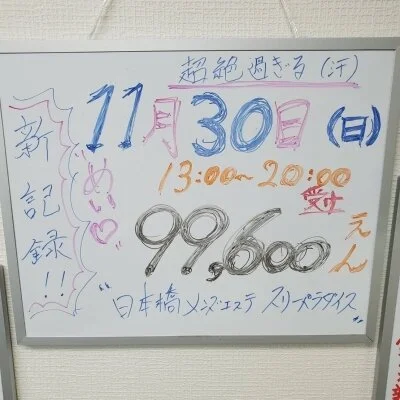 超絶過ぎる(汗)
11月30日(日)
新記録!!
めい♡
13:00~20:00
受付
99,600えん
"日本橋メンズエステ スリーパラダイス"